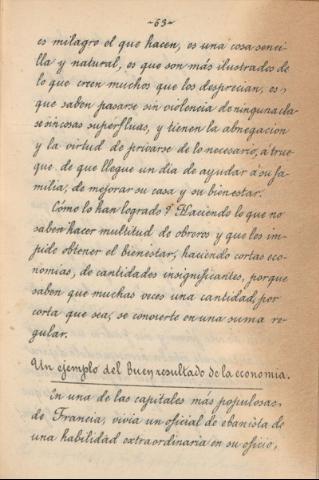 -63-
es milagro el que hacen, es una cosa senci-
lla y natural, es que son más ilustrados de
lo que creen muchos que los desprecian, es,
que saben pasarse sin violencia de ninguna cla-
se sin cosas superfluas, y tienen la abnegación
y la virtud de privarse de lo necesario, á true-
que de que llegue un dia de ayudar á su fa-
milia, de mejorar su casa y su bienestar.
Cómo lo han logrado? Haciendo lo que no
saben hacer multitud de obreros y que les im-
pide obtener el bienestar, haciendo cortas eco-
nomías, de cantidades insignificantes, porque
saben que muchas veces una cantidad, por
corta que sea, se convierte en una suma re-
gular.
Un ejemplo del buen resultado de la economía.
En una de las capitales más populosas
de Francia, vivía un oficial de ebanista de
una habilidad extraordinaria en su oficio,